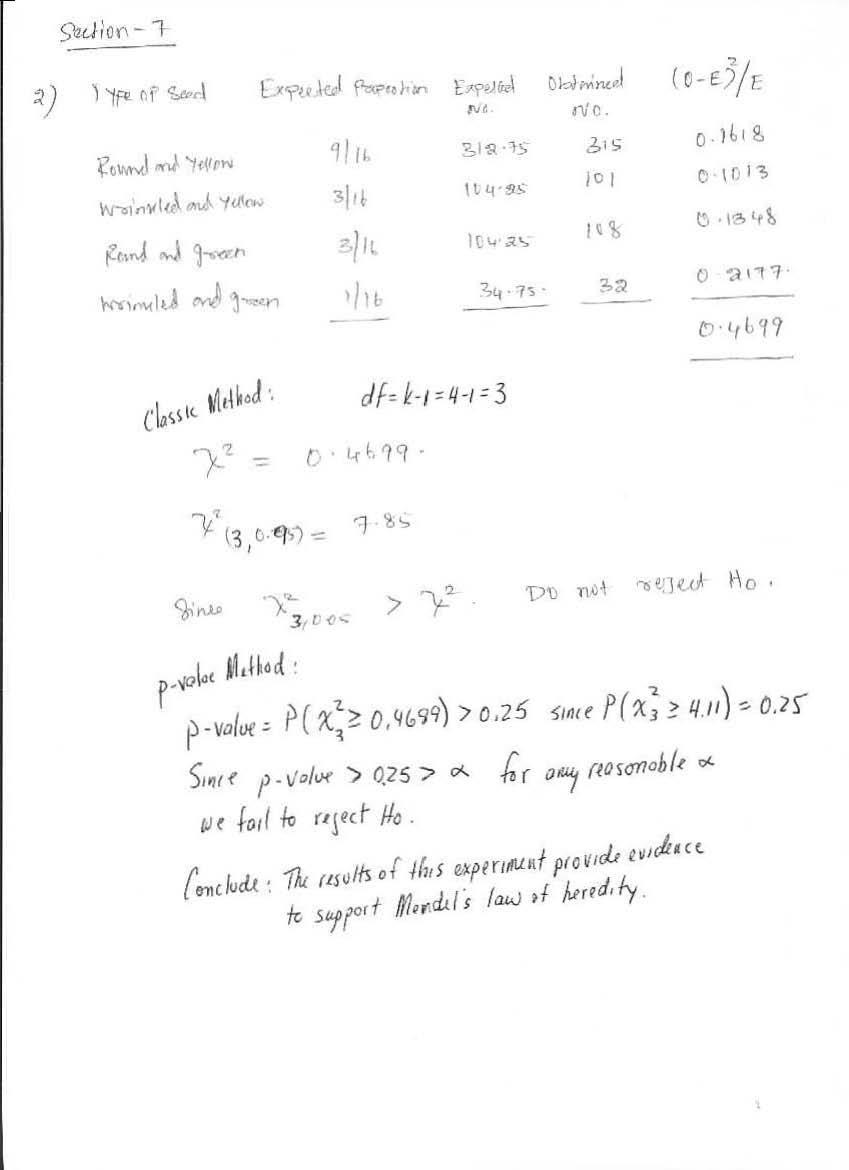 Section - 7
2) Type of Seed Expected Proportion Expected No. Obtained No. (O-E)²/E
Round and Yellow 9/16 312.75 315 0.1618
Wrinkled and Yellow 3/16 104.25 101 0.1013
Round and green 3/16 104.25 108 0.1348
Wrinkled and green 1/16 34.75. 32 0.2177.
0.4699
Classic Method: df = k-1 = 4-1 = 3
χ² = 0.4699.
χ²(3, 0.95) = 7.85
Since χ²3,0.05 > χ². Do not reject Ho.
p-value Method:
p-value = P(χ²3 ≥ 0.4699) > 0.25 since P(χ²3 ≥ 4.11) = 0.25
Since p-value > 0.25 > α for any reasonable α
we fail to reject Ho.
Conclude: The results of this experiment provide evidence
to support Mendel's law of heredity.